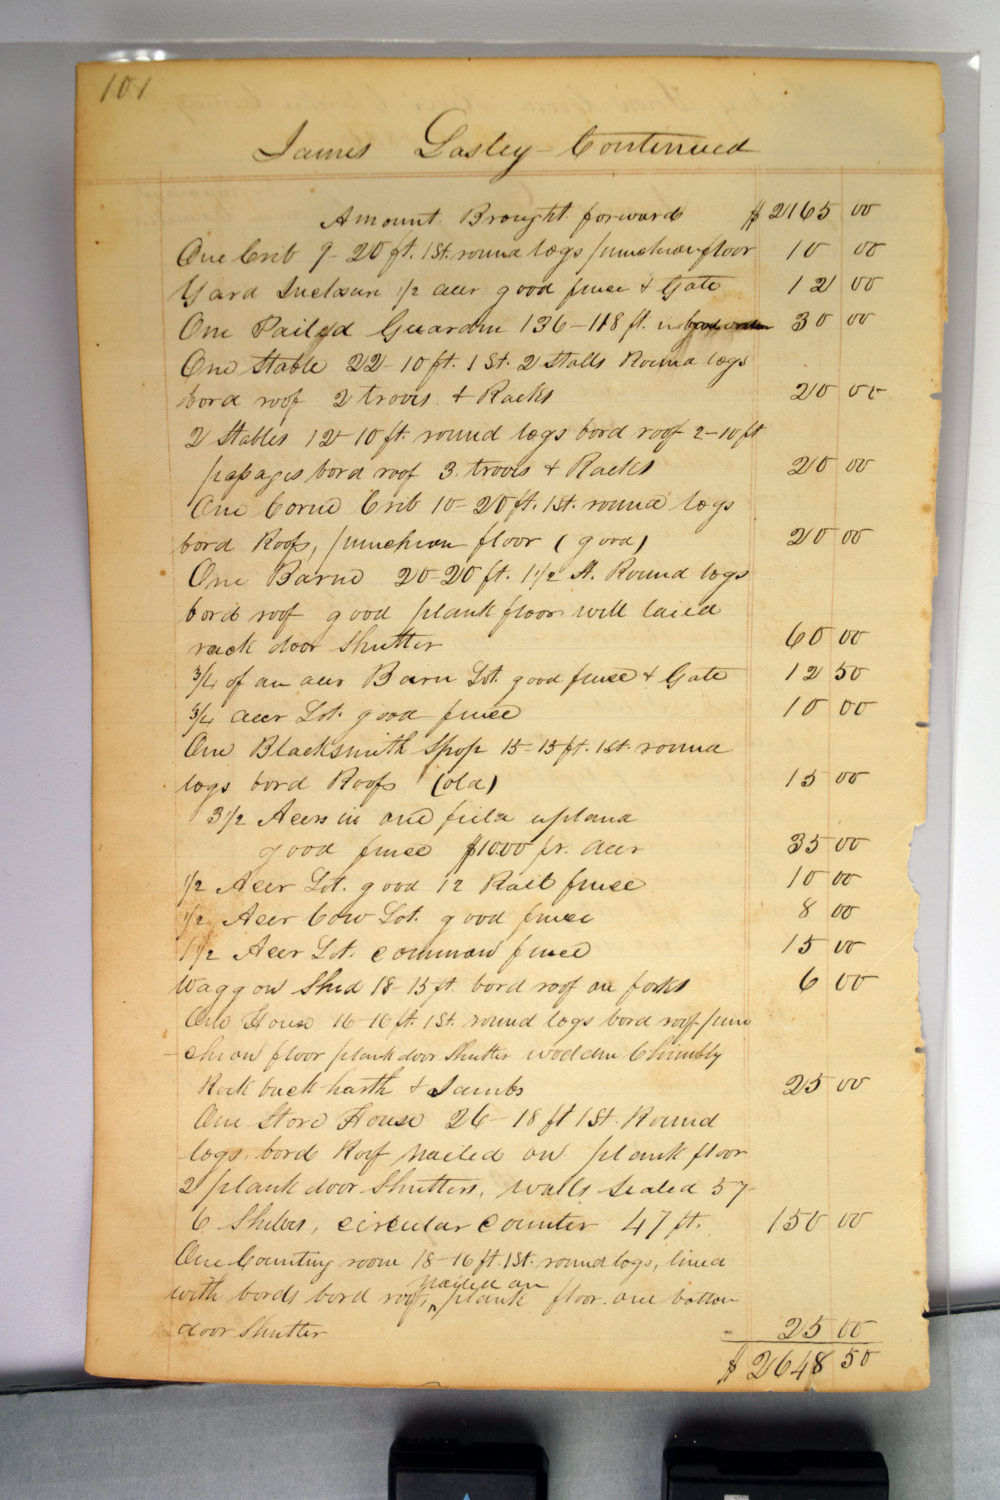 101
James Lasley Continued
Amount Brought forward $2165 00
One Crib 9-20 ft. 1 St. round logs puncheon floor 10 00
Yard Inclosure 1/2 acer good fence & Gate 12 00
One Pailed Guardin 136-118 ft. 30 00
One Stable 22-10 ft. 1 St. 2 Stalls Round logs
bord roof 2 trovs & Racks 20 00
2 Stables 12-10 ft. round logs bord roof 2-10 ft
passages bord roof 3 trovs & Racks 20 00
One Corne Crib 10-20 ft. 1 St. round logs
bord Roofs, puncheon floor (good) 20 00
One Barne 20-20 ft. 1 1/2 St. Round logs
bord roof good plank floor will laied
rack door Shutter 60 00
3/4 of an acer Barn Lot. good fence & Gate 12 50
3/4 acer Lot. good fence 10 00
One Blacksmith Shop 15-15 ft. 1 St. round
logs bord Roofs (old) 15 00
3 1/2 Acers in one field upland
good fence $10.00 pr. acer 35 00
1/2 Acer Lot. good 12 Rail fence 10 00
1/2 Acer Cow Lot. good fence 8 00
1 1/2 Acer Lot. common fence 15 00
Waggon Shed 18-15 ft. bord roof on forks 6 00
One House 16-16 ft. 1 St. round logs bord roof pun
-cheon floor plank door Shutter wooden Chimbly
Rock back harth & Jambs 25 00
One Store House 26-18 ft 1 St. Round
logs, bord Roof nailed on plank floor
2 plank door Shutters, walls Sealed 57-
6 Shelves, circular Counter 47 ft. 150 00
One Counting room 18-16 ft. 1 St. round logs, lined
nailed on
with bords bord roof, ^ plank floor. one batton
door Shutter 25 00
$2648 50